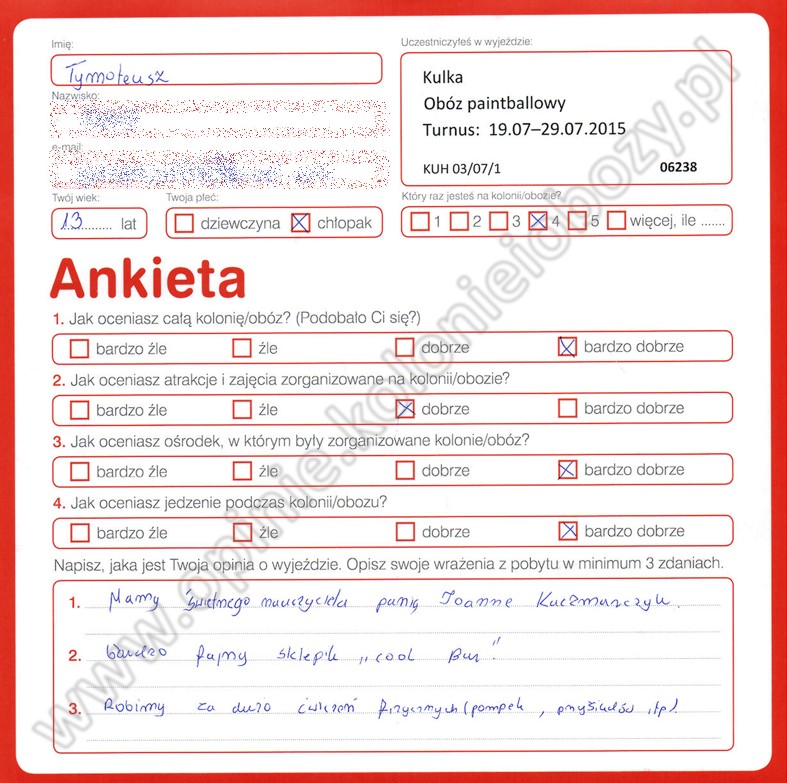 Imię:
Tymoteusz
Nazwisko:
e-mail:
Twój wiek:
13 lat
Twoja płeć:
dziewczyna chłopak
Uczestniczyłeś w wyjeździe:
Kulka
Obóz paintballowy
Turnus: 19.07–29.07.2015
KUH 03/07/1 06238
Który raz jesteś na kolonii/obozie?
1 2 3 4 5 więcej, ile .......
Ankieta
1. Jak oceniasz całą kolonię/obóz? (Podobało Ci się?)
bardzo źle źle dobrze bardzo dobrze
2. Jak oceniasz atrakcje i zajęcia zorganizowane na kolonii/obozie?
bardzo źle źle dobrze bardzo dobrze
3. Jak oceniasz ośrodek, w którym były zorganizowane kolonie/obóz?
bardzo źle źle dobrze bardzo dobrze
4. Jak oceniasz jedzenie podczas kolonii/obozu?
bardzo źle źle dobrze bardzo dobrze
Napisz, jaka jest Twoja opinia o wyjeździe. Opisz swoje wrażenia z pobytu w minimum 3 zdaniach.
1. Mamy świetnego nauczyciela panią Joanne Kaczmarczyk.
2. bardzo fajny sklepik „cool Bar".
3. Robimy za dużo ćwiczeń fizycznych (pompek, przysiadów itp).
www.opinie.kolonieiobozy.pl